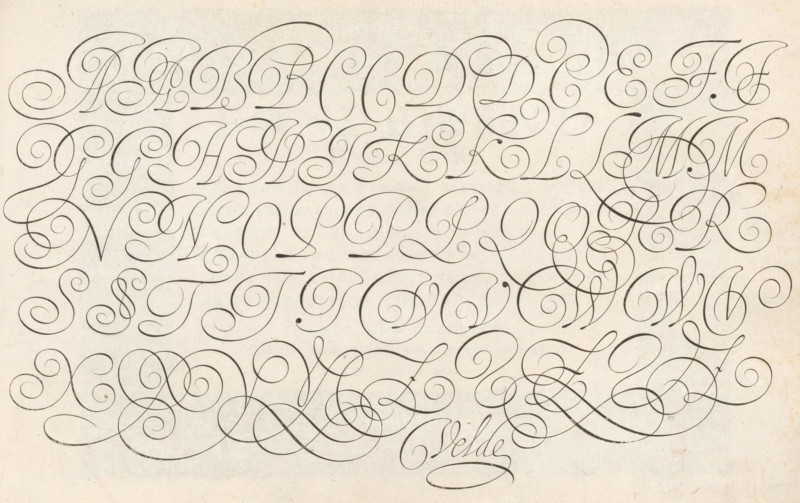 A A B B C C D D C E F. F
G G H H I K K L L M. M
N N O P P P Q Q R R
S S T T. I V V. W W W
X X Y V Z Z Z Z
Velde